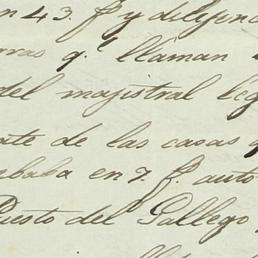 n 43. f.s y diligenc
rras q.e llaman
del magistral leg
ate de las casas q
sbaba en 7. f.s auto
Puesto del Gallego